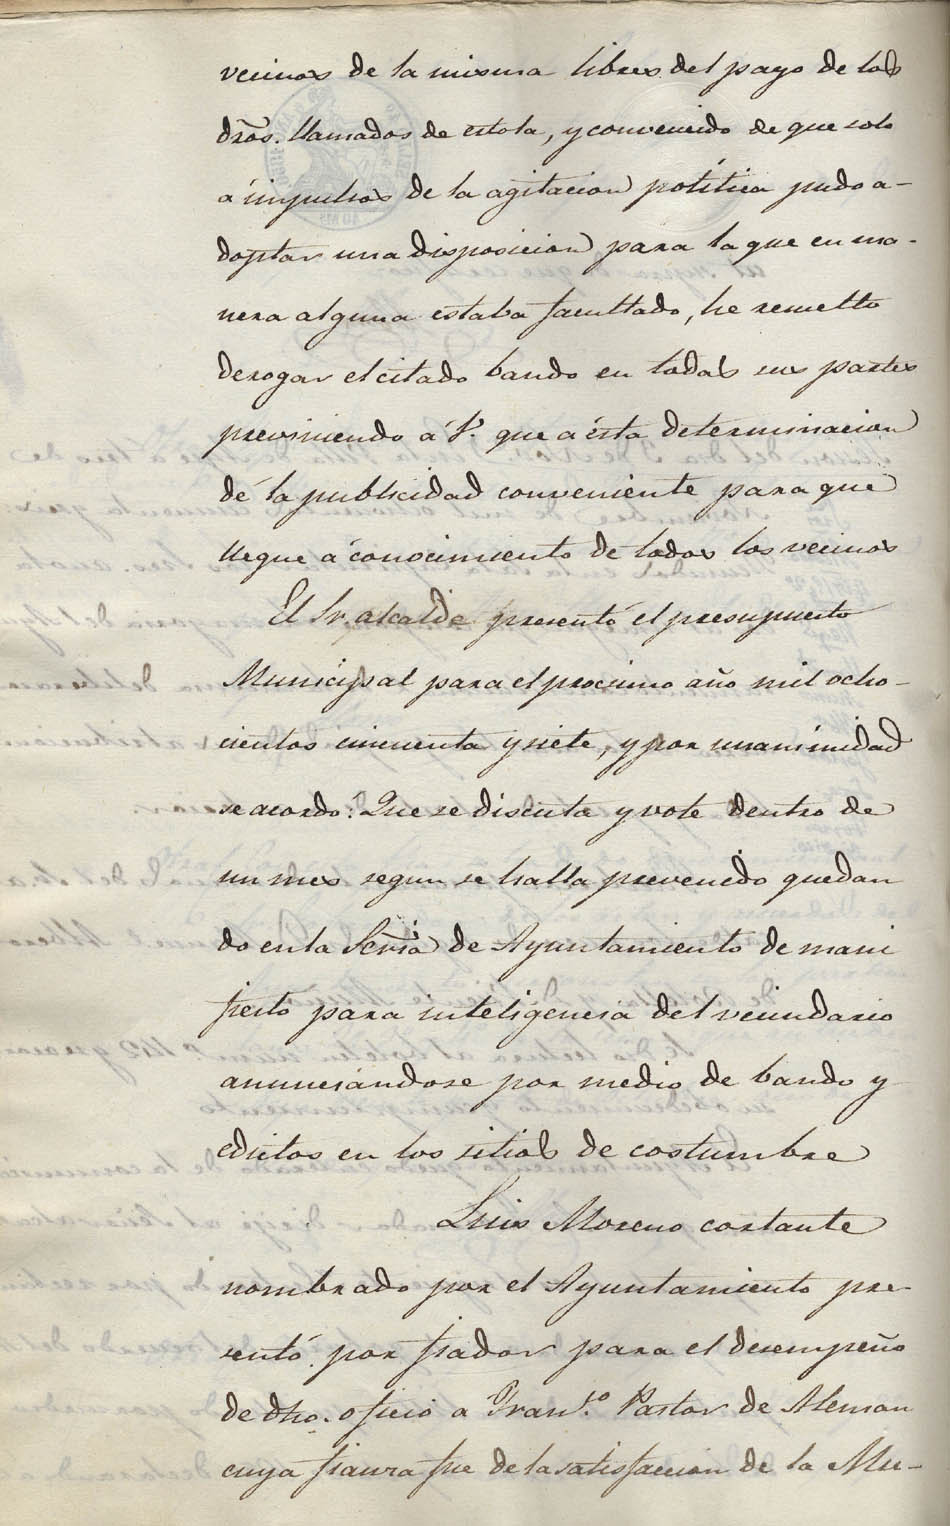 vecinos de la misma libres del pago de los
dros. llamados de estola, y convencido de que solo
a impulsos de la agitacion politica pudo a-
doptar una disposicion para la que en ma-
nera alguna estaba facultado, he resuelto
derogar el citado bando en todas sus partes
previniendo á V. que a ésta determinacion
dé la publicidad conveniente para que
llegue a conocimiento de todos los vecinos
El Sr. alcalde presentó el presupuesto
Municipal para el procsimo año mil ocho-
cientos cincuenta y siete, y por unanimidad
se acordó: Que se discuta y vote dentro de
un mes segun se halla prevenido quedan
do en la Secria de Ayuntamiento de mani
fiesto para inteligencia del vecindario
anunciandose por medio de bando y
edictos en los sitios de costumbre
Luis Moreno cortante
nombrado por el Ayuntamiento pre-
sentó por fiador para el desempeño
de dho. oficio a Franco. Pastor de Aleman
cuya fianza fue de la satisfaccion de la Mu-